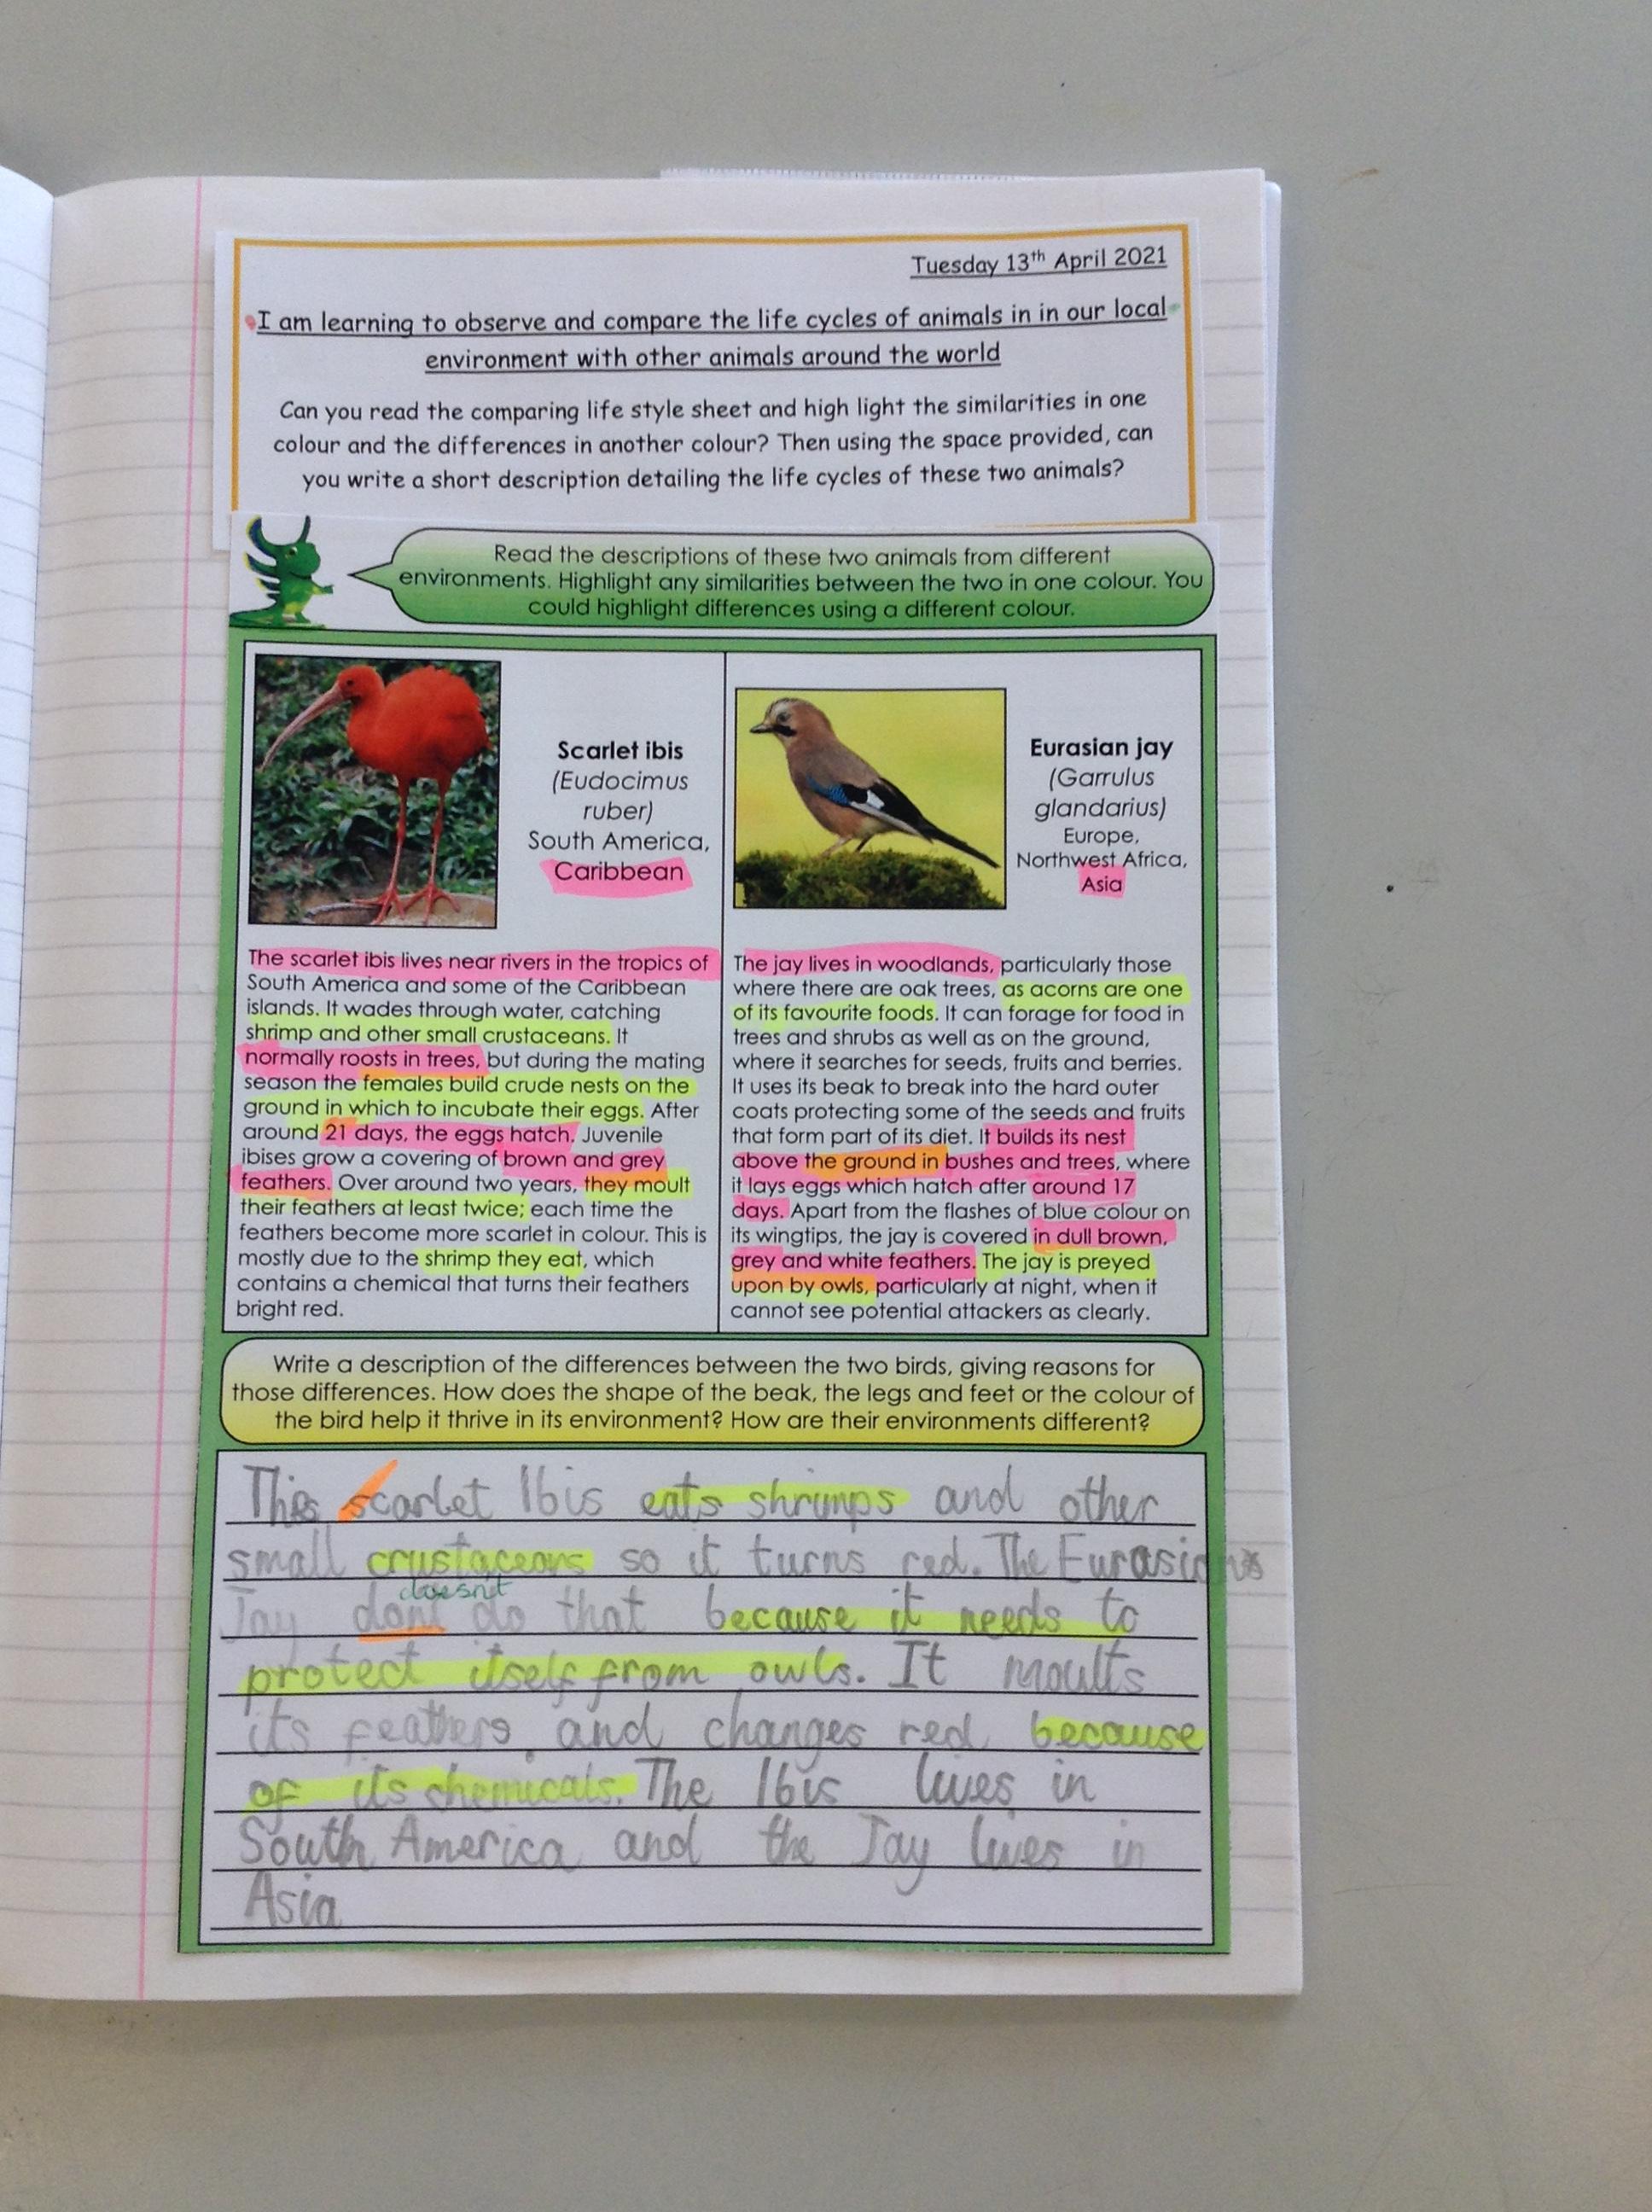 Tuesday 13th April 2021
I am learning to observe and compare the life cycles of animals in in our local
environment with other animals around the world
Can you read the comparing life style sheet and high light the similarities in one
colour and the differences in another colour? Then using the space provided, can
you write a short description detailing the life cycles of these two animals?
Read the descriptions of these two animals from different
environments. Highlight any similarities between the two in one colour. You
could highlight differences using a different colour.
Scarlet ibis
(Eudocimus
ruber)
South America,
Caribbean
The scarlet ibis lives near rivers in the tropics of
South America and some of the Caribbean
islands. It wades through water, catching
shrimp and other small crustaceans. It
normally roosts in trees, but during the mating
season the females build crude nests on the
ground in which to incubate their eggs. After
around 21 days, the eggs hatch. Juvenile
ibises grow a covering of brown and grey
feathers. Over around two years, they moult
their feathers at least twice; each time the
feathers become more scarlet in colour. This is
mostly due to the shrimp they eat, which
contains a chemical that turns their feathers
bright red.
Eurasian jay
(Garrulus
glandarius)
Europe,
Northwest Africa,
Asia
The jay lives in woodlands, particularly those
where there are oak trees, as acorns are one
of its favourite foods. It can forage for food in
trees and shrubs as well as on the ground,
where it searches for seeds, fruits and berries.
It uses its beak to break into the hard outer
coats protecting some of the seeds and fruits
that form part of its diet. It builds its nest
above the ground in bushes and trees, where
it lays eggs which hatch after around 17
days. Apart from the flashes of blue colour on
its wingtips, the jay is covered in dull brown,
grey and white feathers. The jay is preyed
upon by owls, particularly at night, when it
cannot see potential attackers as clearly.
Write a description of the differences between the two birds, giving reasons for
those differences. How does the shape of the beak, the legs and feet or the colour of
the bird help it thrive in its environment? How are their environments different?
scarlet Ibis eats shrimps and other
small crustaceans so it turns red. The
doesn't
Jay dont do that because it needs to
protect itself from owls. It moults
its feathers and changes red because
of its chemicals. The Ibis lives in
South America and the Jay lives in
Asia